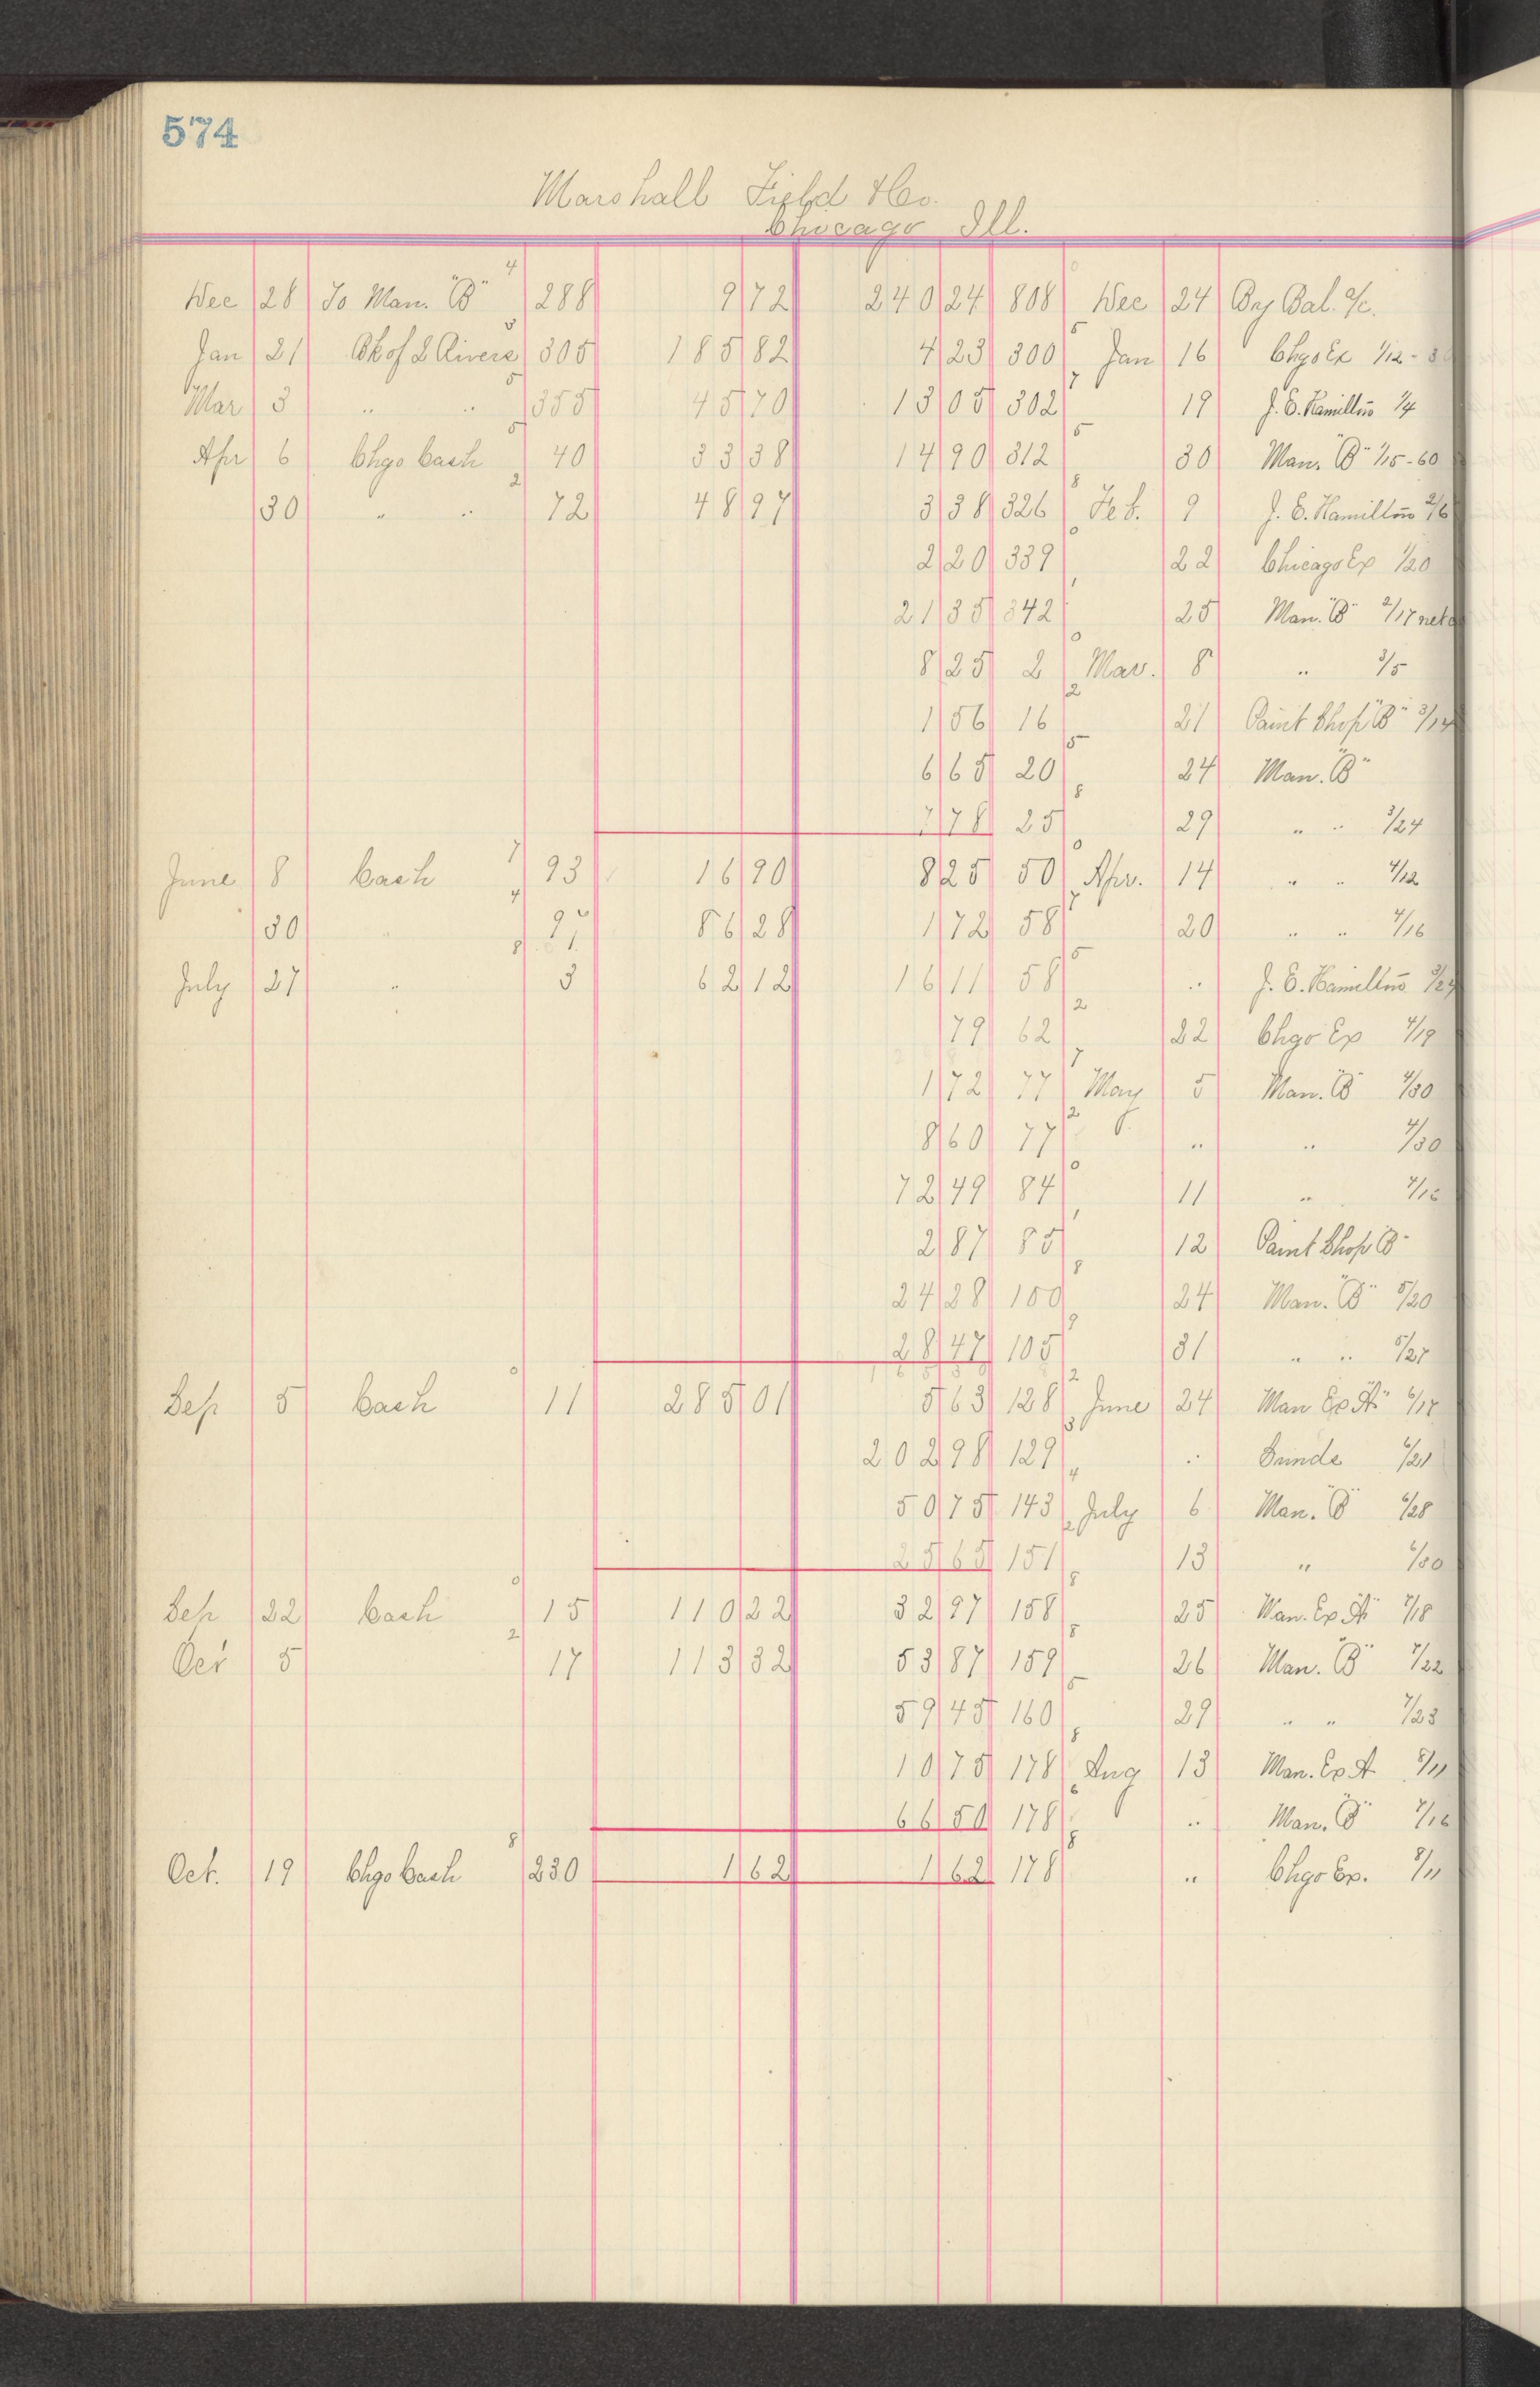 574
Marshall Field & Co.
Chicago Ill.
Dec 28 To Man. "B" 4 288 9 72 240 24 808 Dec 24 By Bal. a/c.
Jan 21 Bk of 2 Rivers 305 185 82 4 23 300 5 Jan 16 Chgo Ex 1/12 -
Mar 3 " " 5 355 45 70 13 05 302 7 19 J. E. Hamilton 1/4
Apr 6 Chgo Cash 5 40 33 38 14 90 312 5 30 Man. "B" 1/15 - 60
30 " " 2 72 48 97 3 38 326 8 Feb. 9 J. E. Hamilton 2/6
2 20 339 0 22 Chicago Ex 1/20
21 35 342 1 25 Man. "B" 2/17 net
8 25 2 0 Mar. 8 " 3/5
1 56 16 2 21 Paint Shop "B"
6 65 20 5 24 Man. "B"
7 78 25 8 29 " " 3/24
June 8 Cash 7 93 16 90 8 25 50 0 Apr. 14 " " 4/12
30 4 97 86 28 1 72 58 7 20 " " 4/16
July 27 " 8 3 62 12 16 11 58 5 " J. E. Hamilton
79 62 2 22 Chgo Ex 4/19
1 72 77 7 May 5 Man. "B" 4/30
8 60 77 2 " " 4/30
72 49 84 0 11 "
2 87 85 1 12 Paint Shop B
24 28 100 8 24 Man. "B" 5/20
28 47 105 9 31 " " 5/27
Sep 5 Cash 0 11 285 01 5 63 128 2 June 24 Man Ex "A" 6/17
202 98 129 3 " Sunds 6/21
50 75 143 4 July 6 Man. "B" 6/28
25 65 151 2 13 " 6/30
Sep 22 Cash 0 15 110 22 32 97 158 8 25 Man. Ex "A" 7/18
Oct 5 2 17 113 32 53 87 159 8 26 Man. "B" 7/22
59 45 160 5 29 " " 7/23
10 75 178 8 Aug 13 Man. Ex A 8/11
66 50 178 6 " Man. "B" 7/16
Oct. 19 Chgo Cash 8 230 1 62 1 62 178 8 " Chgo Ex. 8/11